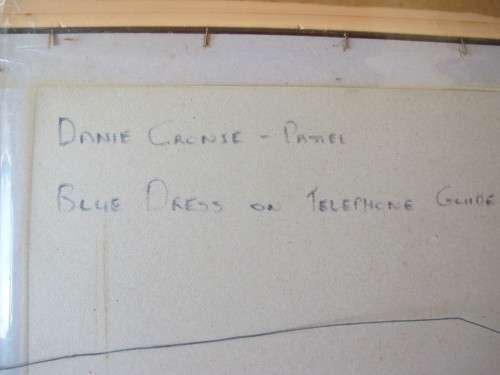 DANIE CRONJE - PASTEL
BLUE DRESS ON TELEPHONE GUIDE